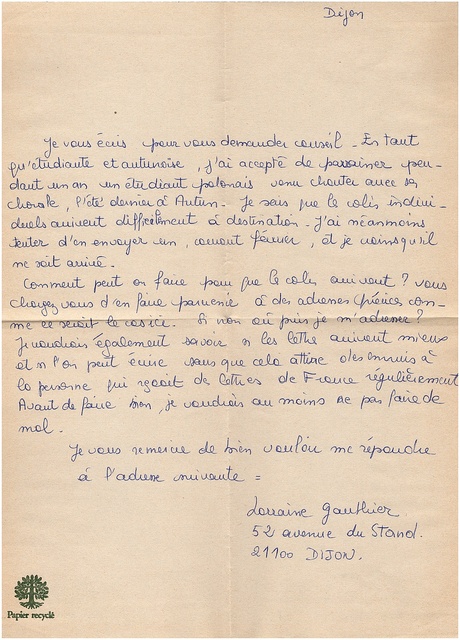 Dijon
Je vous écris pour vous demander conseil - En tant
qu'étudiante et autunoise, j'ai accepté de parrainer pen-
dant un an un étudiant polonais venu chanter avec sa
chorale, l'été dernier à Autun. Je sais que le colis indivi-
duels arrivent difficilement à destination. J'ai néanmoins
tenter d'en envoyer un, courant février, et je crains qu'il
ne soit arrivé.
Comment peut on faire pour que le colis arrivent ? vous
chargez vous d'en faire parvenir à des adresses précises com-
me ce serait le cas ici. Si non où puis je m'adresser ?
Je voudrais également savoir si les lettre arrivent mieux
et si l'on peut écrire sans que cela attire des ennuis à
la personne qui reçoit des lettres de France régulièrement
Avant de faire bien, je voudrais au moins ne pas faire de
mal.
Je vous remercie de bien vouloir me répondre
à l'adresse suivante =
Lorraine Gauthier
52 avenue du Stand.
21100 DIJON.
Papier recyclé